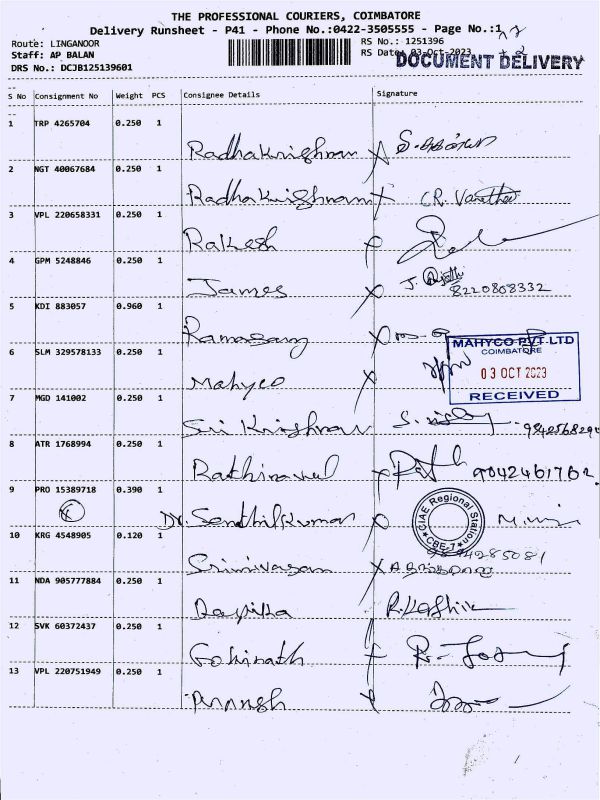 THE PROFESSIONAL COURIERS, COIMBATORE
Delivery Runsheet - P41 - Phone No.:0422-3505555 - Page No.:1
Route: LINGANOOR
RS No.: 1251396
Staff: AP BALAN
RS Date: 03-Oct-2023
DOCUMENT DELIVERY
DRS No.: DCJB125139601
S No Consignment No Weight PCS Consignee Details Signature
1 TRP 4265704 0.250 1
Radhakrishnan
2 NGT 40067684 0.250 1
Radhakrishnan
3 VPL 220658331 0.250 1
Rakesh
4 GPM 5248846 0.250 1
James J. 8220808332
5 KDI 883057 0.960 1
Ramasamy
MAHYCO PVT LTD
COIMBATORE
03 OCT 2023
RECEIVED
6 SLM 329578133 0.250 1
Mahyco
7 MGD 141002 0.250 1
Sri Krishnan
8 ATR 1768994 0.250 1
Rathinavel 9042461762
9 PRO 15389718 0.390 1
Dr. Senthilkumar
CIAE Regional Station
CBE-7
10 KRG 4548905 0.120 1
Srinivasan
11 NDA 905777884 0.250 1
12 SVK 60372437 0.250 1
Gobinath
13 VPL 220751949 0.250 1